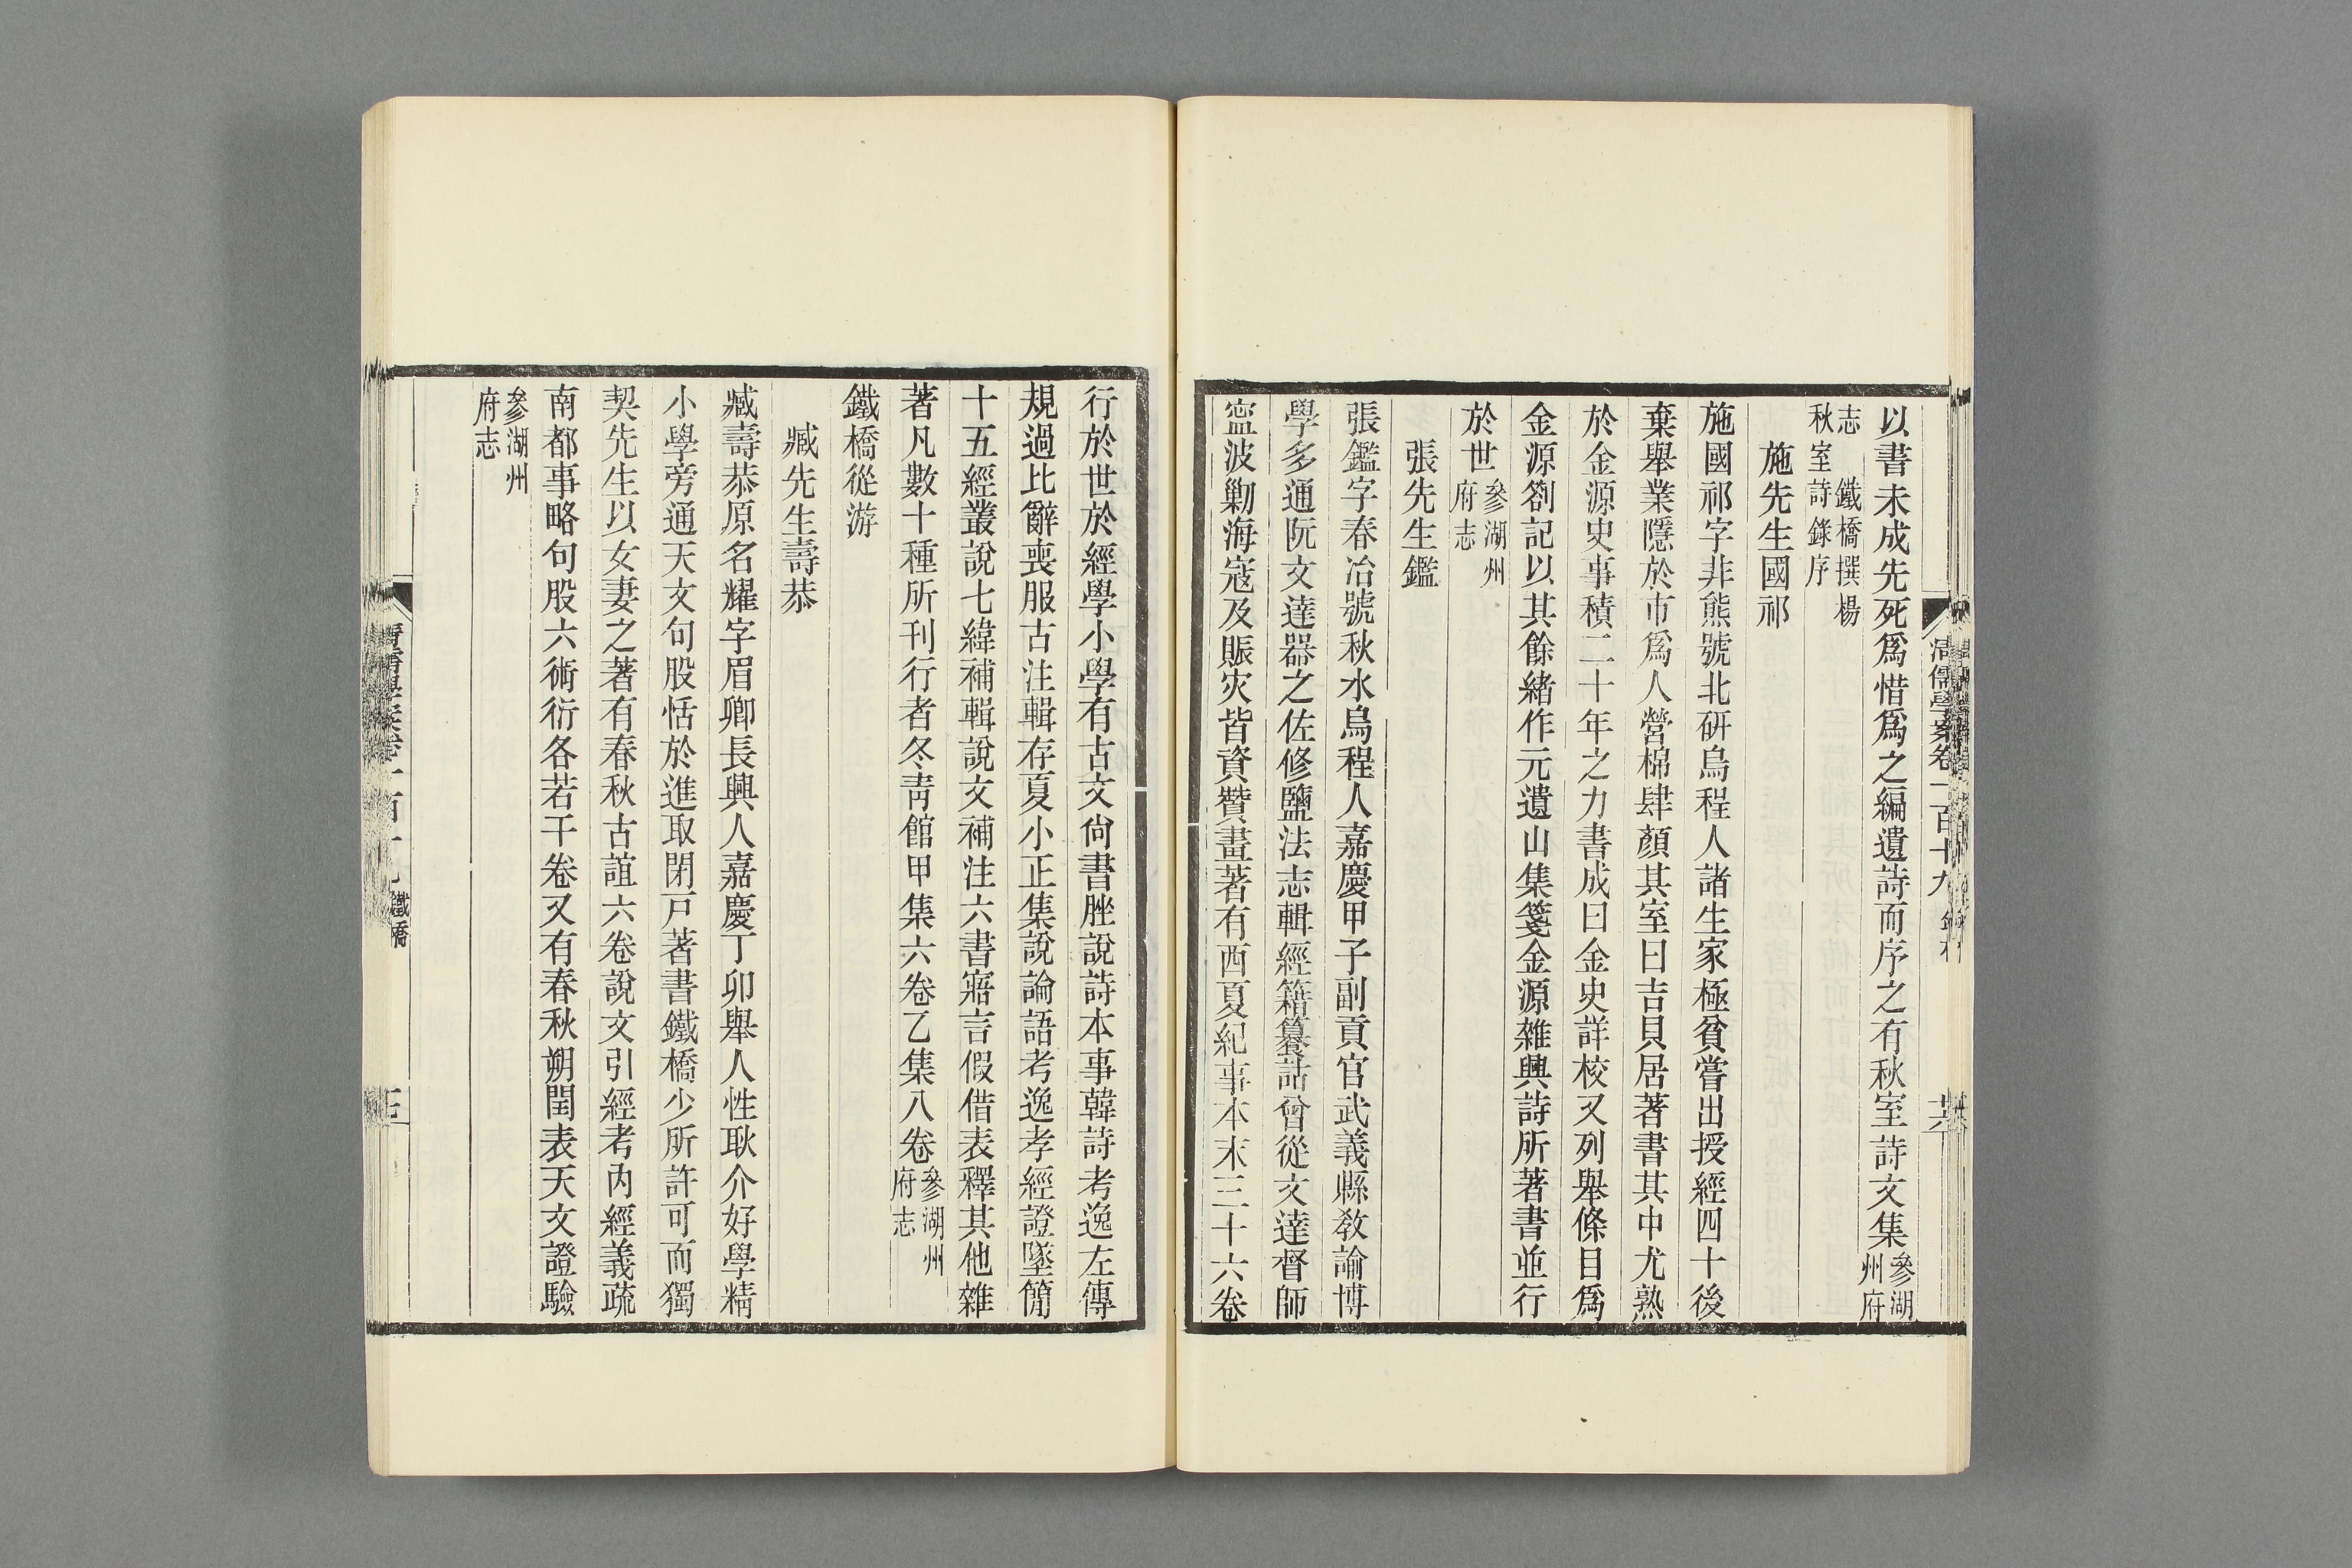 以書未成先死爲惜爲之編遺詩而序之有秋室詩文集參湖州府
志 鐵橋撰楊秋室詩錄序
施先生國祁
施國祁字非熊號北硏烏程人諸生家極貧嘗出授經四十後
棄舉業隱於市爲人營棉肆顏其室曰吉貝居著書其中尤熟
於金源史事積二十年之力書成曰金史詳校又列舉條目爲
金源劄記以其餘緒作元遺山集箋金源雜興詩所著書並行
於世參湖州府志
張先生鑑
張鑑字春冶號秋水烏程人嘉慶甲子副貢官武義縣敎諭博
學多通阮文達器之佐修鹽法志輯經籍籑詁曾從文達督師
寍波勦海寇及賑灾皆資贊畫著有西夏紀事本末三十六卷
行於世於經學小學有古文尙書脞說詩本事韓詩考逸左傳
規過比辭喪服古注輯存夏小正集說論語考逸孝經證墜簡
十五經叢說七緯補輯說文補注六書寤言假借表釋其他雜
著凡數十種所刊行者冬靑館甲集六卷乙集八卷參湖州府志
鐵橋從游
臧先生壽恭
臧壽恭原名耀字眉卿長興人嘉慶丁卯舉人性耿介好學精
小學旁通天文句股恬於進取閉戸著書鐵橋少所許可而獨
契先生以女妻之著有春秋古誼六卷說文引經考內經義疏
南都事略句股六術衍各若干卷又有春秋朔閏表天文證驗
參湖州府志
淸儒學案卷一百十九
鐵橋